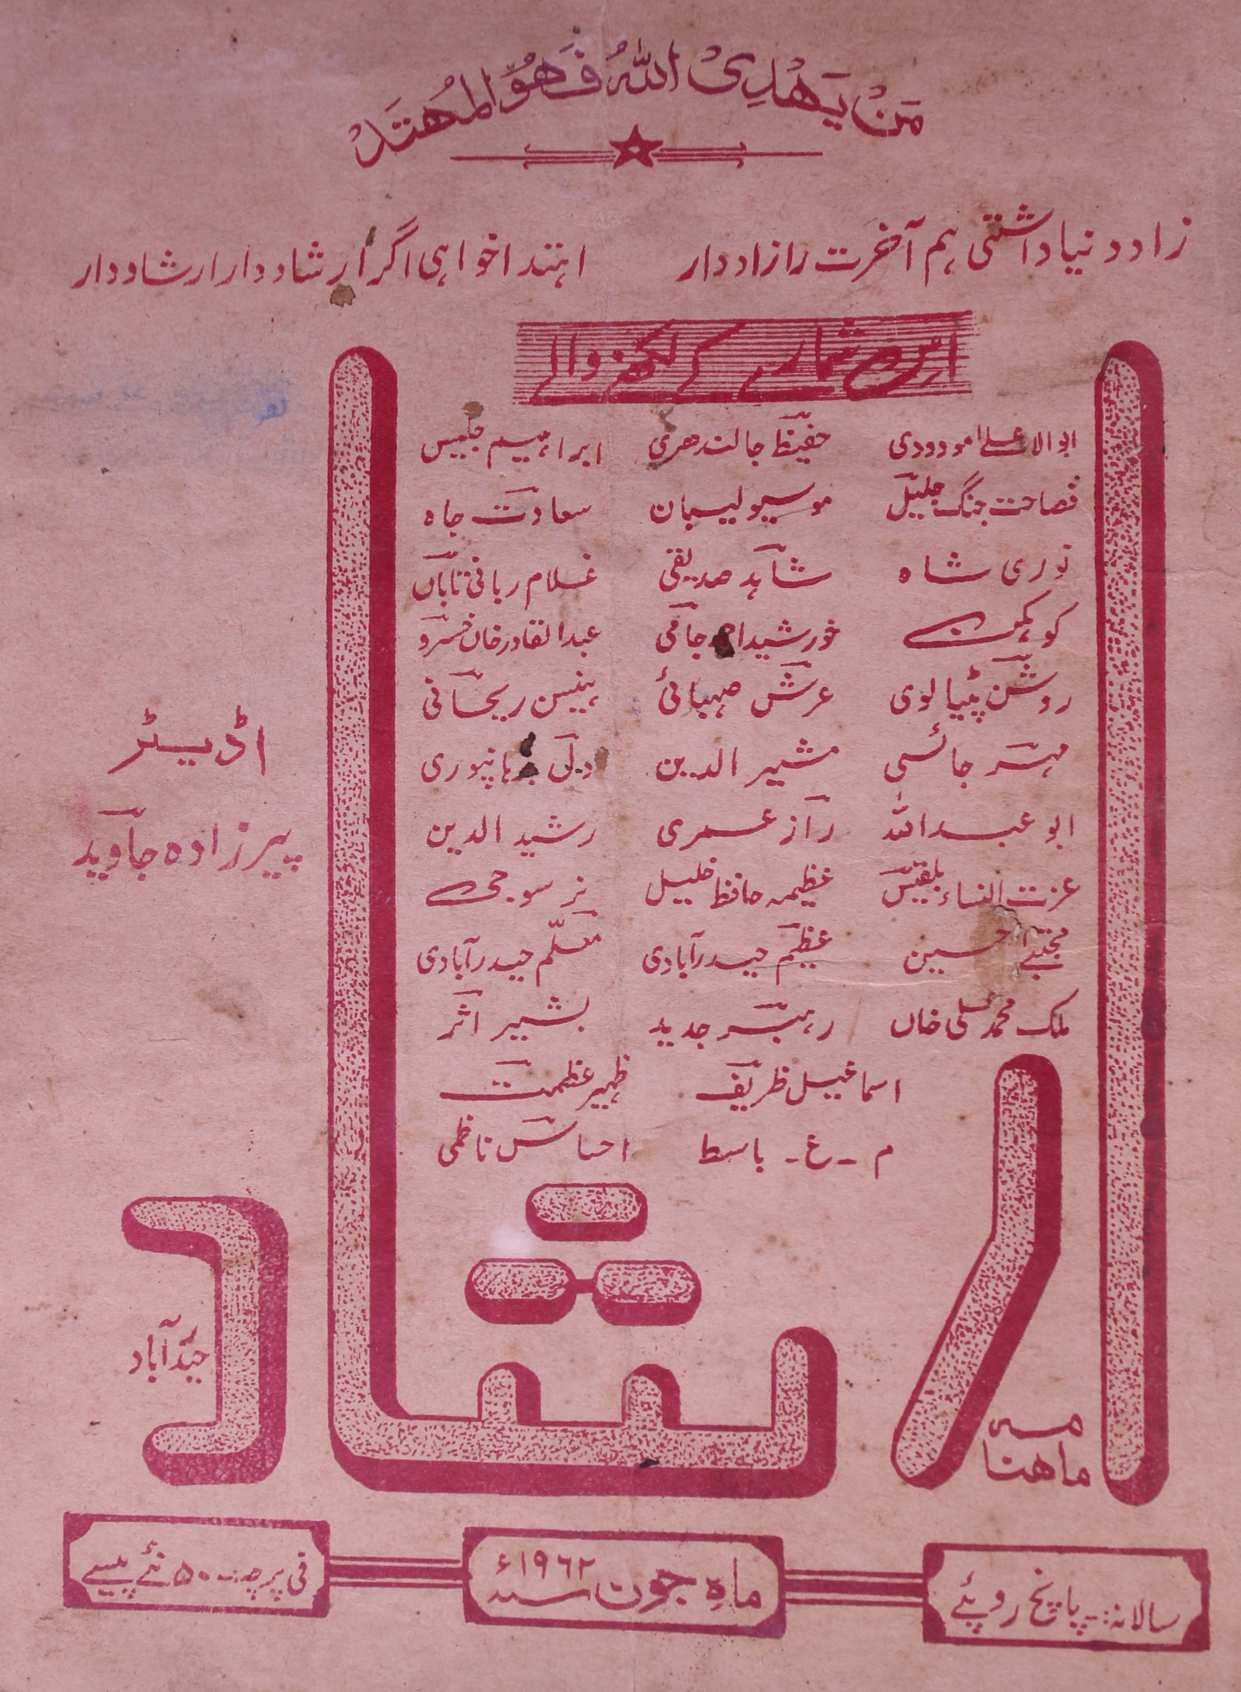 مَنْ يَهْدِى اللهُ فَهُوَ الْمُهْتَدْ
زاد دنیا داشتی ہم آخرت را زاد دار اہتدا خواہی اگر ارشاد دار ارشاد دار
اس شمارے کے لکھنے والے
ابوالاعلےٰ مودودی حفیظ جالندھری ابراہیم جلیس
فصاحت جنگ جلیل موسیو لیبان سعادت جاہ
نوری شاہ شاہد صدیقی غلام ربانی تاباں
کوہکن خورشید احمد جامی عبدالقادر خان خسرو
روشن پٹیالوی عرش صہبائی ہینسن ریحانی
مہر جائسی مشیر الدین ولی برہانپوری
ابو عبداللہ راز عمری رشید الدین
عزت النساء بلقیس عظیمہ حافظ خلیل نرسوجی
مجتبےٰ حسین عظیم حیدرآبادی معلّم حیدرآبادی
ملک محمد علی خاں رہبر جدید بشیر اثر
اسماعیل ظریف ظہیر عظمت
م ۔ ع ۔ باسط احساس ناظمی
اڈیٹر
پیرزادہ جاوید
ماهنامہ
ارشاد
حیدرآباد
سالانہ:۔ پانچ روپئے
ماہِ جون سنہ ۱۹۶۲ء
فی پرچہ ۵۰ نئے پیسے